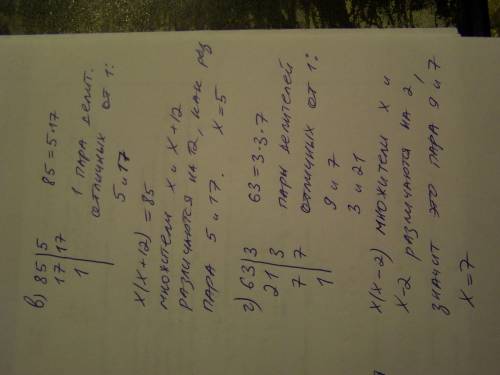 в) 85|5
17|17
1|
85=5·17
1 пара делит.
отличных от 1:
5 и 17
x(x+12)=85
множители x и x+12
различаются на 12, как раз
пара 5 и 17. x=5
г) 63|3
21|3
7|7
1|
63=3·3·7
пары делителей
отличных от 1:
9 и 7
3 и 21
x(x-2) множители x и
x-2 различаются на 2,
значит это пара 9 и 7
x=7